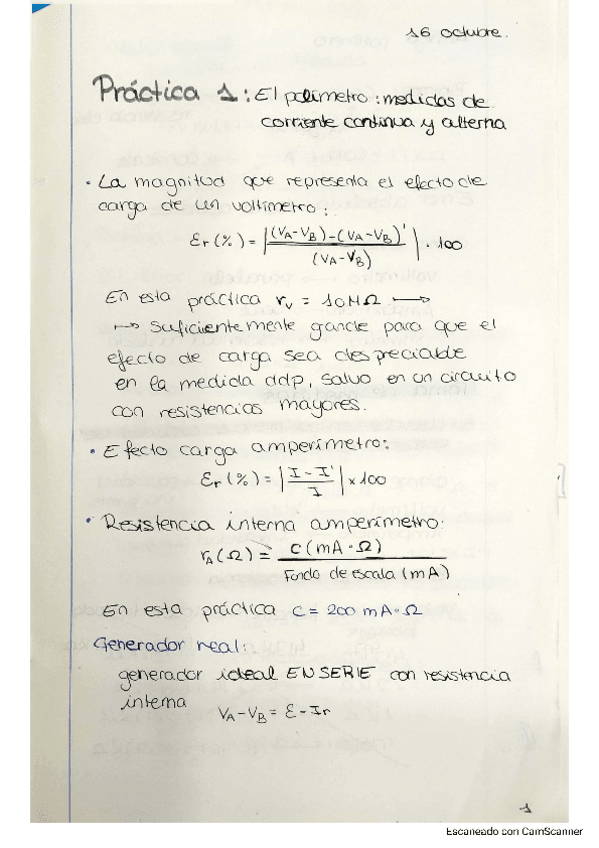 16 octubre.
Práctica 1: El polímetro: medidas de
corriente continua y alterna
· La magnitud que representa el efecto de
carga de un voltímetro:
Er (%) = |(VA-VB)-(VA-VB)' / (VA-VB)| · 100
En esta práctica rv = 10MΩ →
→ Suficientemente gande para que el
efecto de carga sea despreciable
en la medida ddp, salvo en un circuito
con resistencias mayores.
· Efecto carga amperímetro:
Er (%) = |I - I' / I| × 100
· Resistencia interna amperímetro:
rA (Ω) = C (mA · Ω) / Fondo de escala (mA)
En esta práctica C = 200 mA·Ω
Generador real:
generador ideal EN SERIE con resistencia
interna
VA - VB = ε - Ir
1
Escaneado con CamScanner